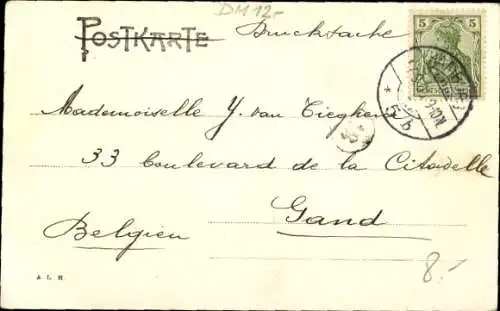 DM 12.-
POSTKARTE Drucksache
5
Mademoiselle Y. van Tieghem
33 boulevard de la Citadelle
Gand
Belgien
A. L. H.
8.-